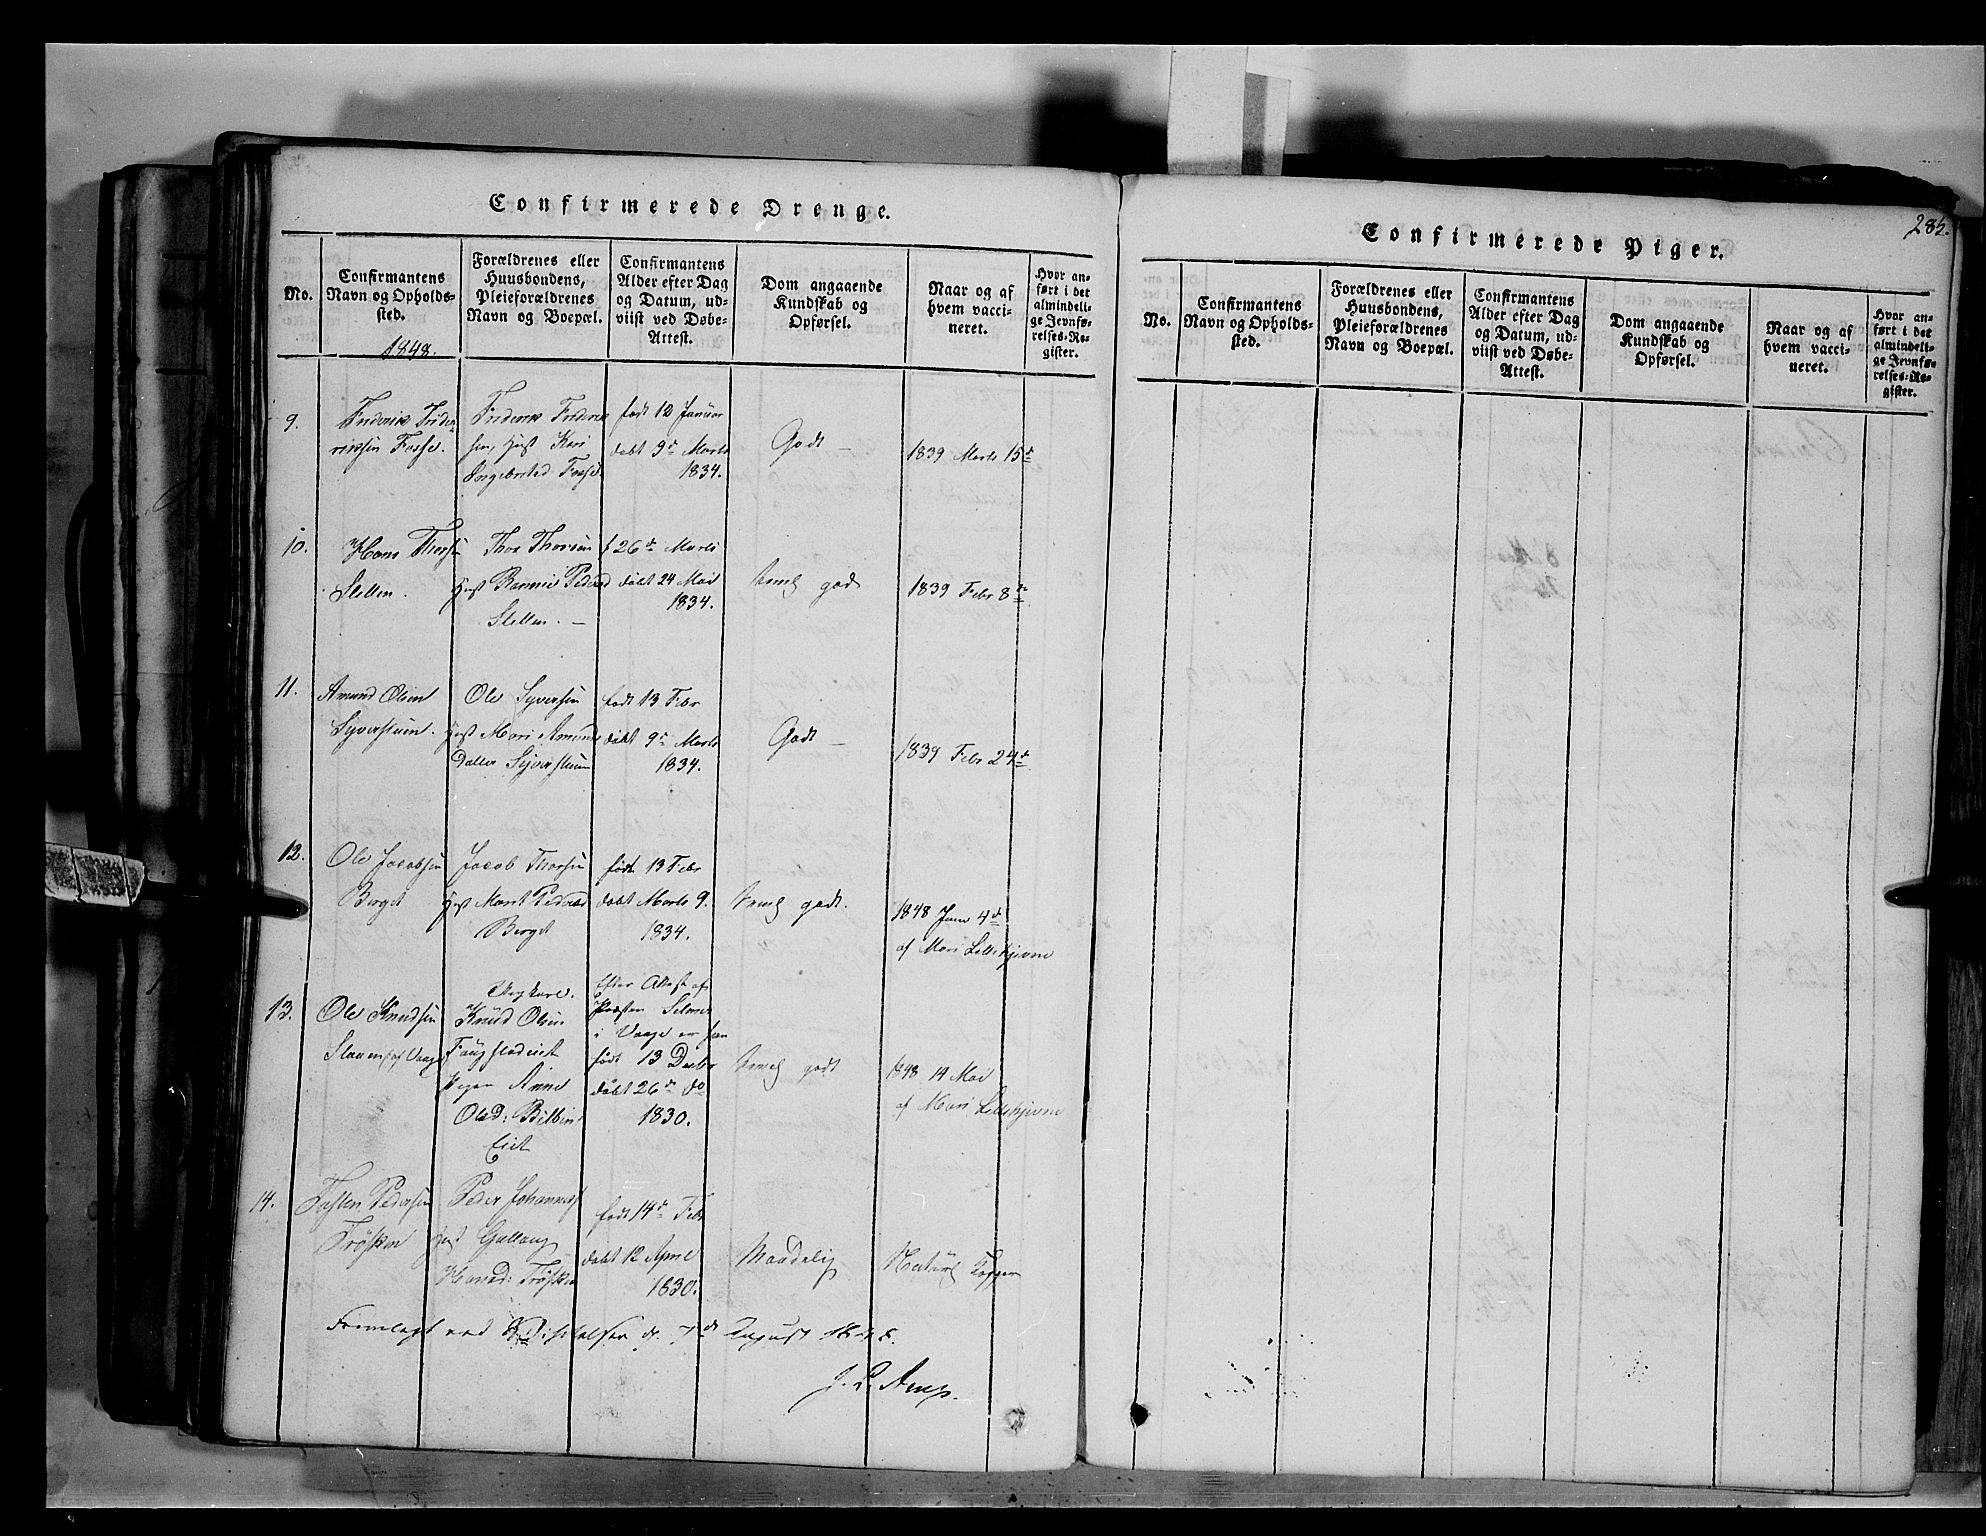 Confirmerede Drenge.
No.
Confirmantens
Navn og Opholds-
sted.
1848.
Forældrenes eller
Huusbondens,
Pleieforældrenes
Navn og Boepæl.
Confirmantens
Alder efter Dag
og Datum, ud-
viist ved Døbe-
Attest.
Dom angaaende
Kundskab og
Opførsel.
Naar og af
hvem vacci-
neret.
Hvor an-
ført i det
almindeli-
ge Jevnfø-
relses-Re-
gister.
9.
Frederik Frider-
richsen Fosse.
Frederik Frederik-
sen, Hust Kari
Ingebrtsd Fosse.
født 12 Januar
døbt 9de Marts
1834.
Godt –
1839 Marts 15de
10.
Hans Thorsen
Sletten.
Thor Thorsen
Hust Rannei Pedersd
Sletten. –
f 26de Marts
døbt 24 Mai
1834.
temlg godt
1839 Febr 8de
11.
Amund Olsen
Syverstuen.
Ole Syversen
Hust Mari Amunds
datter Syverstuen
født 13 Febr
døbt 9de Marts
1834.
Godt –
1839 Febr 24de
12.
Ole Jacobsen
Berget
Jacob Thorsen
Hust Marit Pedersd
Berget
født 13 Febr
døbt Marts 9.
1834.
temlg godt.
1848 Juni 4de
af Mari Lillehjevne
13.
Ole Knudsen
Slaaen af Vaage
Ungkarl
Knud Olsen
Faugstadeiet
Pigen Anne
Olsd: Bilben
Eiet
Efter Attest af
Præsten Selmer
i Vaage er han
født 13 Decbr
døbt 26de do
1830.
temlg godt
1848 14 Mai
af Mari Lillehjevne
14.
Tosten Pedersen
Trøsken
Peder Johannes
Hust Gullaug
Hansd: Trøsken
født 14de Febr
døbt 12 April
1830.
Maadelig
Naturl Kopper
Fremlagt ved Visitatsen d. 7de August 1848.
J. L. Arup.
285.
Confirmerede Piger.
No.
Confirmantens
Navn og Opholds-
sted.
Forældrenes eller
Huusbondens,
Pleieforældrenes
Navn og Boepæl.
Confirmantens
Alder efter Dag
og Datum, ud-
viist ved Døbe-
Attest.
Dom angaaende
Kundskab og
Opførsel.
Naar og af
hvem vacci-
neret.
Hvor an-
ført i det
almindeli-
ge Jevnfø-
relses-Re-
gister.